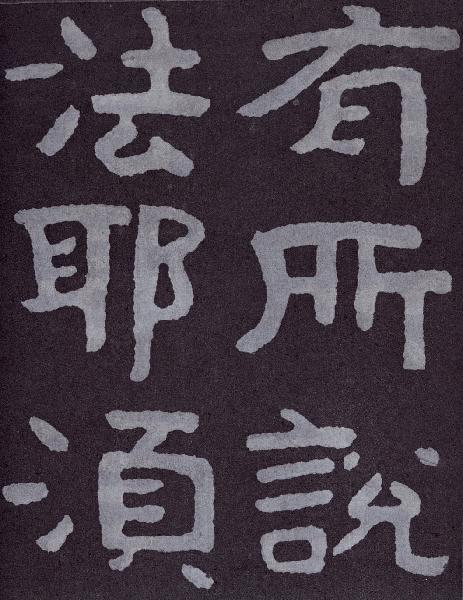 有所說
法耶湏